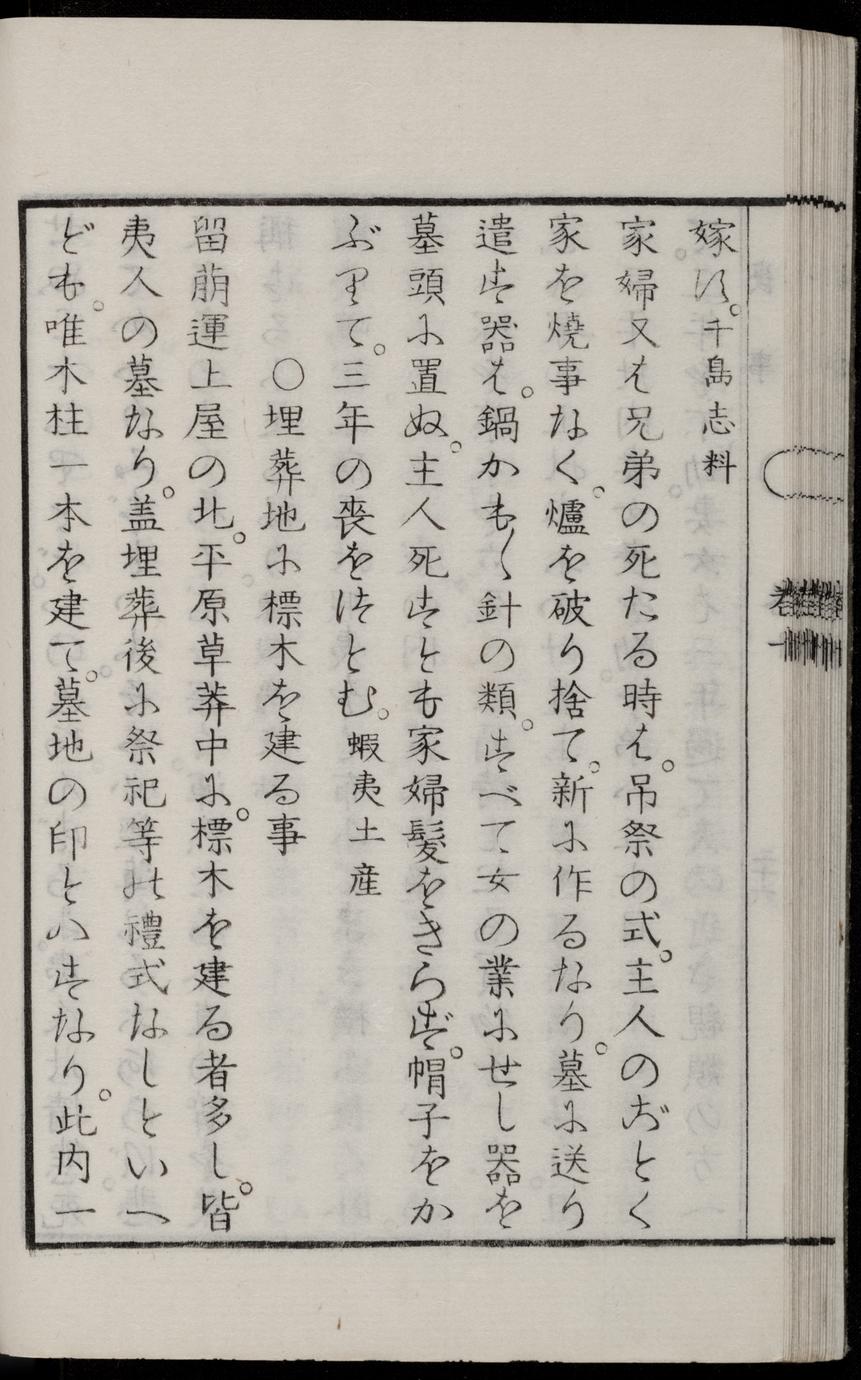 嫁す。千島志料
家婦又は兄弟の死たる時は。吊祭の式。主人のごとく
家を燒事なく。爐を破り捨て。新に作るなり。墓に送り
遣す器は。鍋かも〱針の類。すべて女の業にせし器を
墓頭に置ぬ。主人死すとも家婦髪をきらず。帽子をか
ぶりて。三年の喪をつとむ。蝦夷土産
〇埋葬地に標木を建る事
留萠運上屋の北。平原草莽中に。標木を建る者多し。皆
夷人の墓なり。盖埋葬後に祭祀等の禮式なしといへ
ども。唯木柱一本を建て。墓地の印とハすなり。此内一